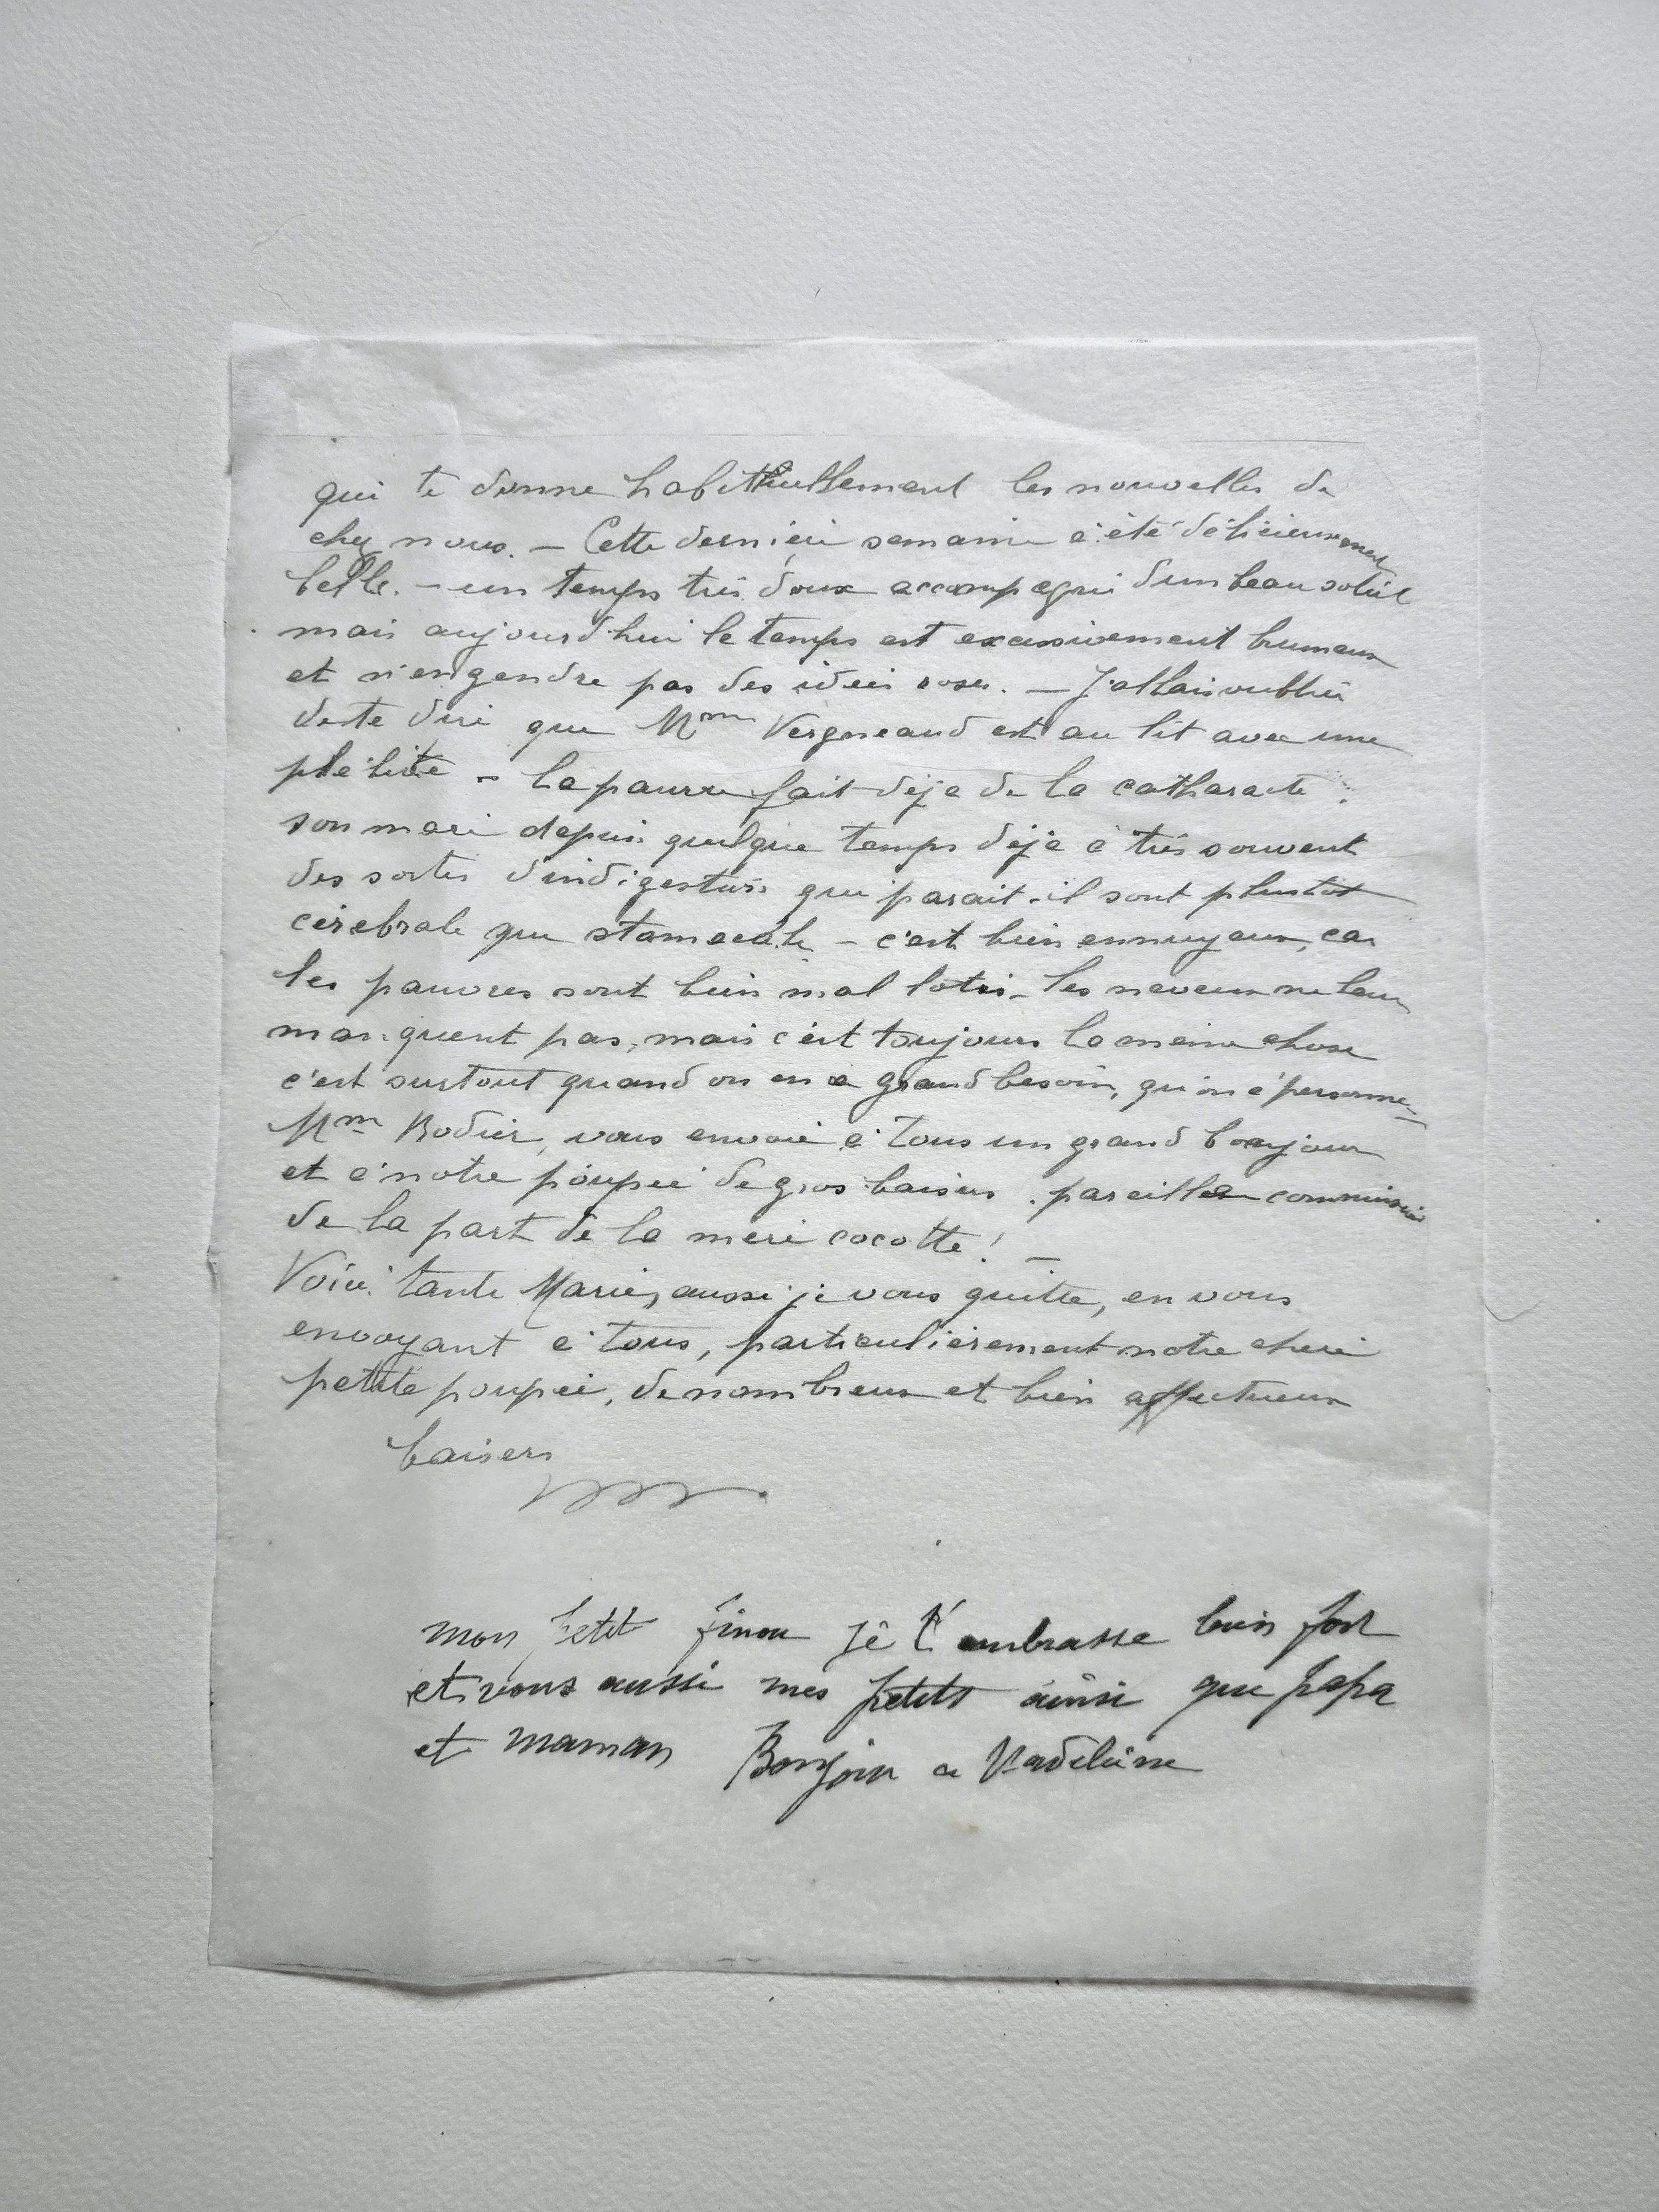 qui te donne habithuellement les nouvelles de
chez nous. — Cette dernière semaine à été délicieusement
belle. — un temps très doux accompagné d'un beau soleil
mais aujourd'hui le temps est excessivement brumeux
et n'engendre pas des idées roses. — J'allais oublier
de te dire que Mme Vergneaud est au lit avec une
phlébite - la pauvre fait déjà de la catharacte.
son mari depuis quelque temps déjà à très souvent
des sortes d'indigestions qui parait-il sont plustot
cérébrale que stomacale - c'est bien ennuyeux, car
les pauvres sont bien mal lotis - les neveux ne leur
manquent pas, mais c'est toujours la même chose
c'est surtout quand on en a grand besoin, qu'on a personne -
Mme Bodier, vous envoie à tous un grand bonjour
et à notre poupée de gros baisers. pareilles commissions
de la part de la mère cocotte! —
Voici tante Marie, aussi je vous quitte, en vous
envoyant à tous, particulièrement notre chérie
petite poupée, de nombreux et bien affectueux
baisers
mon petit finou je t'embrasse bien fort
et vous aussi mes petits ainsi que papa
et maman Bonjour a